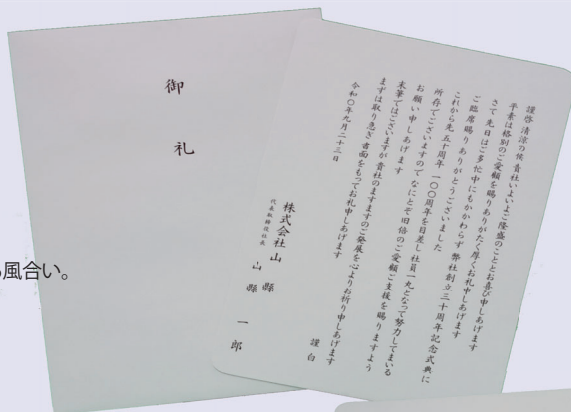 御礼
謹啓 清涼の候 貴社いよいよご隆盛のこととお喜び申しあげます
平素は格別のご愛顧を賜りありがたく厚くお礼申しあげます
さて 先日はご多忙中にもかかわらず 弊社創立三十周年記念式典に
ご臨席賜りありがとうございました
これから先五十周年 一〇〇周年を目差し社員一丸となって努力してまいる
所存でございますので なにとぞ旧倍のご愛顧ご支援を賜りますよう
お願い申しあげます
末筆ではございますが 貴社のますますのご発展を心よりお祈り申しあげます
まずは取り急ぎ書面をもってお礼申しあげます
謹白
令和〇年九月二十三日
株式会社山縣
代表取締役社長 山縣一郎
風合い。